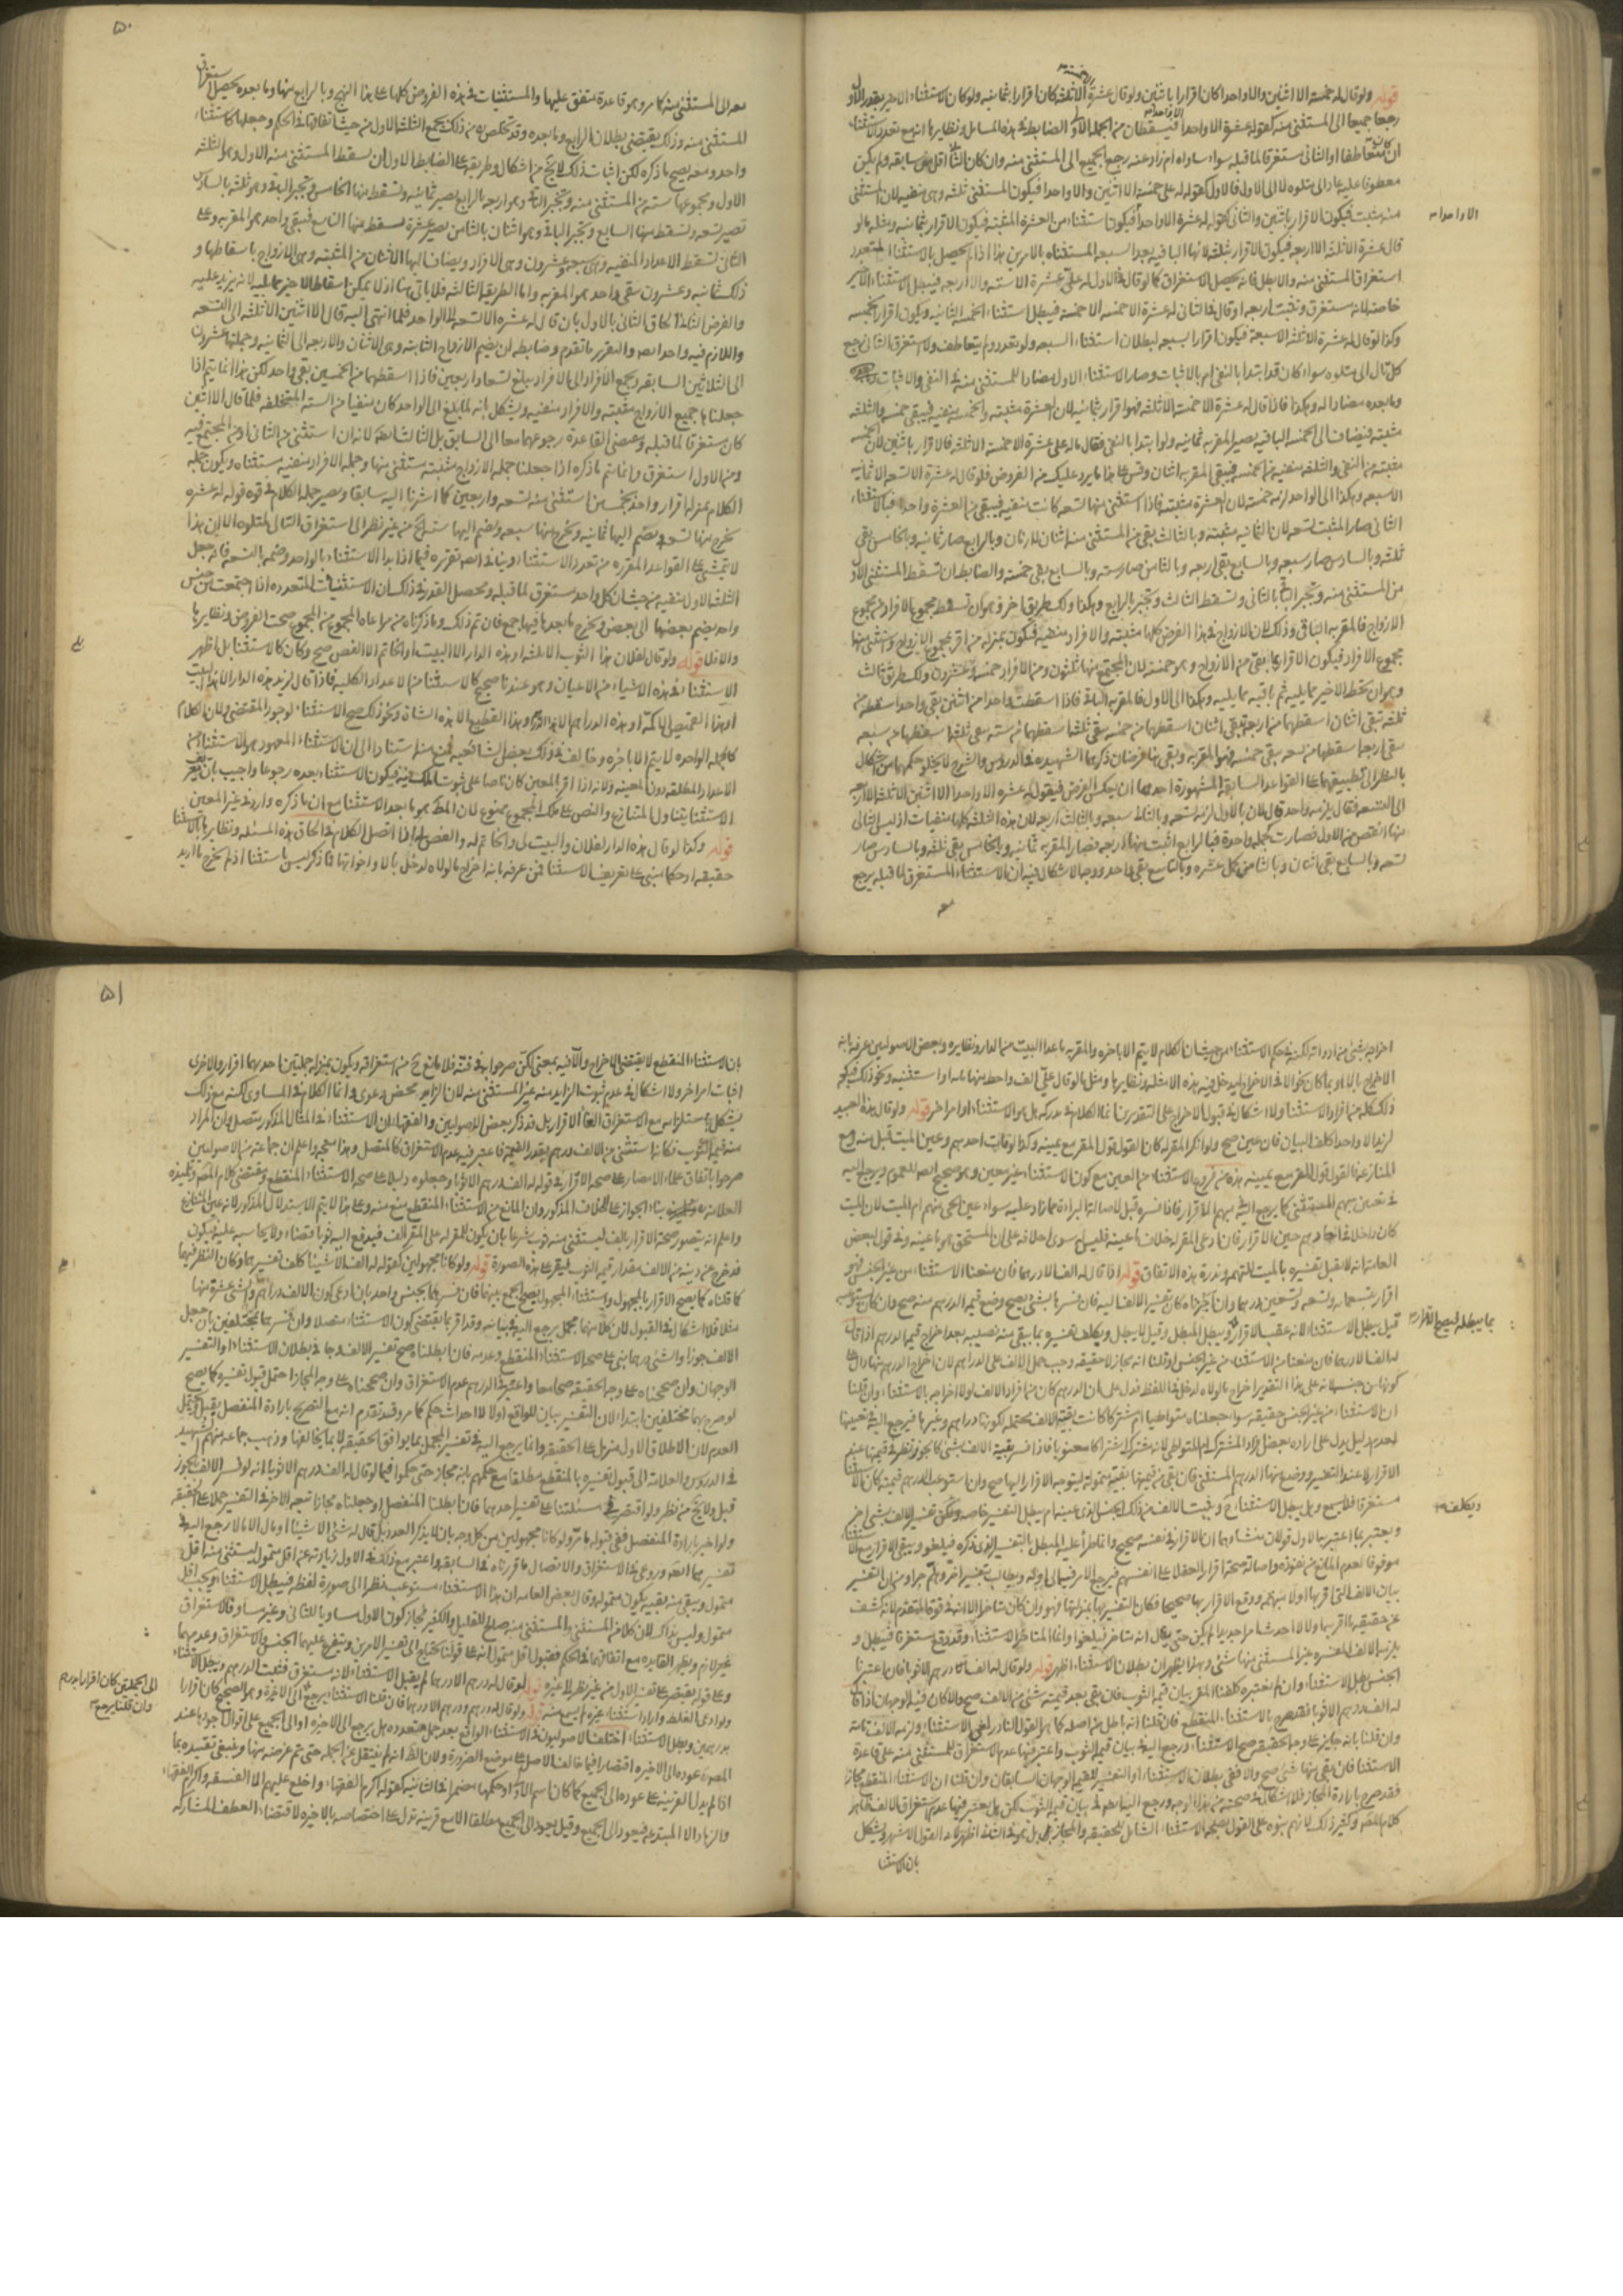 قوله ولو قال له خمسة الا اثنين والا واحدا كان اقرارا باثنين ولو قال عشرة الا ثلثه كان اقرارا بثمانيه ولو كان الاستثناء الاخير بقدر الاول
رجعا جميعا الى المستثنى منه كقوله عشرة الا واحدا فيسقطان من الجمله الاولى الضابط في هذه المسايل ونظايرها انه مع تعدد الاستثناء
ان كان متعاطفا او الثاني مستغرقا لما قبله سواء ساواه ام زاد عنه رجع الجميع الى المستثنى منه وان كان الثاني اقل من سابقه ولم يكن
معطوفا عليه عاد الى متلوه لا الى الاول فالاول كقوله له على خمسة الا اثنين والا واحدا فيكون المستثنى ثلثه وهي منفيه لان المستثنى
منه مثبت فيكون الاقرار باثنين والثاني كقوله له عشرة الا واحدا فيكون استثناء من العشرة المثبته فيكون الاقرار بثمانيه ومثله ما لو
الا واحدا
قال عشرة الا ثلثه الا اربعه فيكون الاقرار بثلثه لانها الباقيه بعد السبعه المستثناه بالامرين هذا اذا لم يحصل بالاستثناء المتعدد
استغراق المستثنى منه والا بطل ما به يحصل الاستغراق كما لو قال في الاول له على عشرة الا سته والا اربعه فيبطل الاستثناء الاخير
خاصه لانه مستغرق ويثبت اربعه او قال في الثاني له عشرة الا خمسة الا خمسة فيبطل استثناء الخمسه الثانيه ويكون اقرارا بخمسه
وكذا لو قال له عشرة الا ثلثه الا سبعة فيكون اقرارا بسبعه لبطلان استثناء السبعه ولو تعدد ولم يتعاطف ولا استغرق الثاني رجع
كل تال الى متلوه سواء كان قد ابتدا بالنفي ام بالاثبات وصار الاستثناء الاول مضادا للمستثنى منه في النفي والاثبات
وما بعده مضادا له وهكذا فاذا قال له عشرة الا خمسة الا ثلثه فهو اقرار بثمانيه لان العشرة مثبته والخمسه منفيه فيبقى خمسه والثلثه
مثبته فيضاف الى الخمسه الباقيه يصير المقر به ثمانيه ولو ابتدا بالنفي فقال ما له على عشرة الا خمسة الا ثلثه فالاقرار باثنين لان الخمسه
مثبته من النفي والثلثه منفيه من الخمسه فيبقى المقر به اثنان وقس على هذا ما يرد عليك من الفروض فلو قال له عشرة الا تسعه الا ثمانيه
الا سبعه وهكذا الى الواحد لزمه خمسة لان العشرة مثبته فاذا استثنى منها تسعه كانت منفيه فيبقى من العشرة واحد فبالاستثناء
الثاني صار المثبت تسعه لان الثمانيه مثبته وبالثالث يبقى من المستثنى منه اثنان وبالرابع صار ثمانيه وبالخامس بقي
ثلثه وبالسادس صار سبعه وبالسابع بقي اربعه وبالثامن صار سته وبالتاسع بقي خمسة والضابط ان تسقط المستثنى الاول
من المستثنى منه وتجبر الباقي بالثاني وتسقط الثالث وتجبر بالرابع وهكذا ولك طريق اخر وهو ان تسقط مجموع الافراد من مجموع
الازواج فالمقر به الباقي وذلك لان الازواج في هذا الفرض كلها مثبته والافراد منفيه فيكون بمنزله من اقر بمجموع الازواج واستثنى منها
مجموع الافراد فيكون الاقرار بما بقي من الازواج وهو خمسة لان المجتمع منها ثلثون ومن الافراد خمسة وعشرون ولك طريق ثالث
وهو ان تحط الاخير مما يليه ثم باقيه مما يليه وهكذا الى الاول فالمقر به الباقي فاذا اسقطت واحدا من اثنين بقي واحد اسقطه من
ثلثه تبقى اثنان اسقطهما من اربعه تبقى اثنان اسقطهما من خمسه تبقى ثلثه اسقطها من سته تبقى ثلثه اسقطها من سبعه
بقي اربعه اسقطها من تسعه بقي خمسه فهو المقر به وبقي هنا فرضان ذكرهما الشهيد في الدروس والشرح لا يخلو حكمهما من اشكال
بالنظر الى تطبيقهما على القواعد السابقه المشهورة احدهما ان يعكس الفرض فيقول له عشرة الا واحدا الا اثنين الا ثلثه الا اربعه
الى التسعه فقال يلزمه واحد قال لان بالاول لزمه تسعه وبالثاني سبعه وبالثالث اربعه لان هذه الثلثه كلها منفيات اذ ليس الثاني
منها انقص من الاول فصارت كجمله واحدة فبالرابع اثبت منها اربعه فصار المقر به ثمانيه وبالخامس بقي ثلثه وبالسادس صار
تسعه وبالسابع بقي اثنان وبالثامن كمل عشره وبالتاسع بقي واحد ووجه الاشكال فيه ان الاستثناء المستغرق لما قبله يرجع
معه
۵۰
معه الى المستثنى منه كما مر وهو قاعدة متفق عليها والمستثنيات في هذه الفروض كلها على هذا النهج وبالرابع منها وما بعده يحصل استغراق
المستثنى منه وذلك يقتضي بطلان الرابع وما بعده وقد تخلص من ذلك بجمع الثلثه الاول من حيث اتفاقها في الحكم وجعلها كاستثناء
واحد ومعه يصح ما ذكره لكن اثبات ذلك لا يخ من اشكال وطريقه على الضابط الاول ان تسقط المستثنى منه الاول وهو الثلثه
الاول ومجموعها سته من المستثنى منه وتجبر الباقي وهو اربعه بالرابع يصير ثمانيه وتسقط منها الخامس وتجبر الباقي وهو ثلثه بالسادس
تصير تسعه وتسقط منها السابع وتجبر الباقي وهو اثنان بالثامن يصير عشرة تسقط منها التاسع فيبقى واحد هو المقر به وعلى
الثاني تسقط الاعداد المنفيه وهي سبعه وعشرون وهي الافراد ويضاف اليها الاثنان من المثبته وهي الازواج باسقاطها و
ذلك ثمانيه وعشرون بقي واحد هو المقر به واما الطريقه الثالثه فلا ياتي هنا اذ لا يمكن اسقاط الاخير مما يليه لانه يزيد عليه
والفرض الثاني الحاق الثاني بالاول بان قال له عشره الا تسعه الى الواحد فلما انتهى اليه قال الا اثنين الا ثلثه الى التسعه
واللازم فيه واحد ايضا والتقرير ما تقدم وضابطه ان يضم الازواج الثانيه وهي الاثنان والاربعه الى الثمانيه وجملتها عشرون
الى الثلثين السابقه ويجمع الافراد الى الافراد يبلغ تسعه واربعين فاذا اسقطها من الخمسين بقي واحد لكن هذا انما يتم اذا
جعلنا جميع الازواج مثبته والافراد منفيه ويشكل بانه لما بلغ الى الواحد كان منفيا من الستة المتخلفه فلما قال الا اثنين
كان مستغرقا لما قبله ومقتضى القاعدة رجوعهما معا الى السابق بل الثالث ايضا
ومن الاول استغرق وانما يتم ما ذكره اذا جعلنا جمله الازواج مثبته مستثنى منها وجمله الافراد منفيه مستثناه ويكون جمله
الكلام بمنزله اقرار واحد بخمسين استثنى منه تسعه واربعين كما اشرنا اليه سابقا ويصير جمله الكلام في قوة قوله له عشره
تخرج منها تسعه وتضم اليها ثمانيه وتخرج منها سبعه وتضم اليها سته الخ من غير نظر الى استغراق التالي لمتلوه الا ان هذا
لا يتمشى على القواعد المقرره من تعدد الاستثناء وينافي ايضا تقريره فيما اذا بدا الاستثناء بالواحد وختمه بالتسعه فانه جعل
الثلثه الاول منفيه من حيث ان كل واحد مستغرق لما قبله ومحصل القدر في ذلك ان الاستثنيات المتعدده اذا اجتمعت من جنس
واحد يضم بعضها الى بعض وتخرج ما بعدها فيما جمع فان تم ذلك وما ذكرناه من مراعاه المجموع من المجموع صحت الفروض ونظايرها
والا فلا قوله ولو قال لفلان هذا الثوب الا ثلثه او هذه الدار الا البيت او الخاتم الا الفص صح وكان كالاستثناء بل اظهر
الاستثناء في هذه الاشياء من الاعيان وهو عندنا صحيح كالاستثناء من الاعداد الكليه فاذا قال لزيد هذه الدار الا هذا البيت
او هذا القميص الا كمه او هذه الدراهم الا هذا الدرهم وهذا القطيع الا هذه الشاة ونحو ذلك صح الاستثناء لوجود المقتضي ولان الكلام
كالجمله الواحده لا يتم الا باخره وخالف في ذلك بعض الشافعيه فمنع منه استنادا الى ان الاستثناء المعهود هو الاستثناء من
الاعداد المطلقه دون المعينه ولانه اذا اقر بالمعين كان ناصا على ثبوت الملك فيه فيكون الاستثناء بعده رجوعا واجيب
الاستثناء يتناول المتنازع والنص على ملك المجموع ممنوع لان الحكم هو ما بعد الاستثناء مع ان ما ذكره وارد في غير المعين
قوله وكذا لو قال هذه الدار لفلان والبيت لي والخاتم له والفص لي اذا اتصل الكلام في الحاق هذه المسئله ونظايرها بالاستثناء
حقيقه او حكما مبني على تعريف الاستثناء فمن عرفه بانه اخراج ما لولاه لدخل بالا واخواتها فما ذكر ليس باستثناء اذ لم يخرج بالا ايد
اخراجه بشيء من ادواته لكن في حكم الاستثناء من حيث ان الكلام لا يتم الا باخره والمقر به ما عدا البيت من الدار ونظايره وبعض الاصوليين عرفه بانه
الاخراج بالا وما كان نحو الا في الاخراج ليدخل فيه هذه الامثله ونظايرها ومثله ما لو قال على الف واحط منها مائه او استثنيه ونحو ذلك فيكون
ذلك كله من افراد الاستثناء ولا اشكال في قبول الاخراج على التقديرين انما الكلام في مدركه هل هو الاستثناء او امر اخر قوله ولو قال هذه العبيد
لزيد الا واحدا كلف البيان فان عين صح ولو انكر المقر له كان القول قول المقر مع يمينه وكذا لو مات احدهم وعين الميت قبل منه ومع
المنازعه فالقول قول المقر مع يمينه هذه من فروع الاستثناء من العين مع كون الاستثناء غير معين وهو صحيح ايضا للعموم ويرجع اليه
في تعيين مبهم المستثنى كما يرجع اليه في مبهم الاقرار فاذا فسره قبل لاصاله البراءة مما زاد عليه سواء عين الحي منهم ام الميت لان الميت
كان داخلا في اعدادهم حين الاقرار فان ادعى المقر له خلاف ما عينه فليس له سوى احلافه على ان المستحق هو ما عينه وفي قول لبعض
العامه انه لا يقبل تفسيره بالميت للتهمه وندرة هذه الاتفاق قوله اذا قال له الف الا درهما فان منعنا الاستثناء من غير الجنس فهو
اقرار بتسعمايه وتسعه وتسعين درهما وان اجزناه كان تفسير الالف اليه فان فسرها بشيء يصح وضع قيمه الدرهم منه صح وان كان يستوعبه
قيل يبطل الاستثناء لانه عقب الاقرار بما يبطله ويبطل المبطل وقيل لا يبطل ويكلف تفسيره بما يبقى منه بقيه بعد اخراج قيمه الدرهم اذا قال
بما يبطله فيصح الاقرار
له الف الا درهما فان منعنا من الاستثناء من غير الجنس او قلنا انه مجاز لا حقيقه وجب حمل الالف على الدراهم لان اخراج الدرهم منها دال على
كونه من جنسها لانه على هذا التقدير اخراج ما لولاه لدخل في اللفظ فدل على ان الدرهم كان من افراد الالف لولا اخراجه بالاستثناء وان قلنا
ان الاستثناء من غير الجنس حقيقه سواء جعلناه متواطيا ام مشتركا كانت بقيه الالف محتمله لكونها دراهم وغيرها فيرجع اليه في تعيينها
لعدم دليل يدل على ارادة بعض افراد المشترك ام المتواطي لانه مشترك اشتراكا معنويا فاذا فسر بقيه الالف بشيء كالجوز نظر في قيمتها عند
الاقرار لا عند التفسير ووضع منها الدرهم المستثنى فان بقي من قيمتها بقيه متموله ليتوجه الاقرار اليها صح وان استوعب الدرهم قيمته كان الاستثناء
مستغرقا فلا يسمع وهل يبطل الاستثناء ح وبقيت الالف من ذلك الجنس الذي عينه ام يبطل التفسير خاصه ويكلف تفسير الالف بشيء اخر
ويكلف
ويعتبر بما اعتبر به الاول قولان منشاوهما ان الاقرار في نفسه صحيح وانما طرا عليه المبطل بالتفسير الذي ذكره فيلغو ويبقى الاقرار مع الاستثناء
موقوفا لعدم المانع من نفوذه واصاله صحة اقرار العقلا على انفسهم فيرجع الامر فيه الى اوله ويطالب بتفسير اخر وهلم جرا ومن ان التفسير
بيان الالف التي اقر بها اولا مبهمه ووقع الاقرار بها صحيحا فكان التفسير بها بمنزلتها فهو وان كان متاخرا الا انه في قوة المتقدم لانه كشف
عن حقيقه ما اقر به اولا لا احداث امر جديد لم يكن حتى يقال انه متاخر فيلغو وانما المتاخر الاستثناء وقد وقع مستغرقا فيبطل و
يلزمه الالف المفسره غير المستثنى منها شيء وبهذا يظهر ان بطلان الاستثناء اظهر قوله ولو قال له الف درهم الا ثوبا فان اعتبرنا
الجنس بطل الاستثناء وان لم نعتبره كلفنا المقر بيان قيمه الثوب فان بقي بعد قيمته شيء من الالف صح والا كان فيه الوجهان اذا قال
له الف درهم الا ثوبا فقد صرح بالاستثناء المنقطع فان قلنا انه باطل من اصله كما هو القول النادر لغى الاستثناء ولزمه الالف تامه
وان قلنا بانه جايز على وجه الحقيقه صح الاستثناء ورجع اليه في بيان قيمه الثوب واعتبر فيها عدم الاستغراق للمستثنى منه على قاعدة
الاستثناء فان بقي منها شيء صح والا ففي بطلان الاستثناء او التفسير للقيمه الوجهان السابقان وان قلنا ان الاستثناء المنقطع مجاز
فقد صرح بارادة المجاز فلا اشكال في صحته من هذا الوجه ورجع اليه ايضا في بيان قيمه الثوب لكن هل يعتبر فيها عدم استغراق الالف ظاهر
كلام المصنف وكثير ذلك لانهم بنوه على القول بصحه الاستثناء الشامل للحقيقه والمجاز بل هو في الثاني اظهر لانه القول الاشهر ويشكل
بان الاستثنا
۵۱
بان الاستثناء المنقطع لا يقتضي الاخراج والا فيه بمعنى لكن صرحوا به في فنه فلا مانع ح من استغراقه ويكون بمنزله جملتين احديهما اقرار والاخرى
اثبات امر اخر ولا اشكال في عدم ثبوت الزايد منه عن المستثنى منه لان الزايد محض دعوى وانما الكلام في المساوي لكنه مع ذلك
يشكل باستلزامه مع الاستغراق الغاء الاقرار بل قد ذكر بعض الاصوليين والفقهاء ان الاستثناء في المثال المذكور متصل وان المراد
منه قيمه الثوب فكانه استثنى من الالف درهم بقدر القيمه فاعتبر فيه عدم الاستغراق كالمتصل وهذا متجه واعلم ان جماعه من الاصوليين
صرحوا باتفاق علماء الامصار على صحه الاقرار في قوله له الف درهم الا ثوبا وجعلوه دليلا على صحه الاستثناء المنقطع ومقتضى كلام المصنف وتلميذه
العلامه بناء الجواز على الخلاف المذكور وان المانع من الاستثناء المنقطع يمنع منه وعلى هذا لا يتم الاستدلال المذكور لانه عين المتنازع
واعلم انه يتصور صحه الاقرار بالف ليستثنى منه ثوب شرعا بان يكون للمقر له على المقر الف فيدفع اليه ثوبا قضاء ولا يحاسبه عليه فيكون
قد خرج عن دينه من الالف بمقدار قيمه الثوب فيقر على هذه الصورة قوله ولو كانا مجهولين كقوله له الف الا شيئا كلف تفسيرهما وكان النظر فيهما
كما قلناه كما يصح الاقرار بالمجهول واستثناء المجهول يصح الجمع بينهما فان فسرهما بجنس واحد بان ادعى كون الالف دراهم والشيء عشرة منها
مثلا فلا اشكال في القبول لان كلا منهما مجمل يرجع اليه في بيانه وقد اقر بما يقتضي كون الاستثناء متصلا وان فسرهما بمختلفين بان جعل
الالف جوزا والشيء درهما بني على صحه الاستثناء المنقطع وعدمه فان ابطلناه صح تفسير الالف وجاء في بطلان الاستثناء او التفسير
الوجهان وان صححناه على وجه الحقيقه صحا معا واعتبر في الدرهم عدم الاستغراق وان صححناه على وجه المجاز احتمل قبول تفسيره كما يصح
لو صرح بهما مختلفين ابتداء لان التفسير بيان للواقع اولا لا احداث حكم كما مر وقد تقدم انه مع التصريح بارادة المنفصل يقبل ويحتمل
العدم لان الاطلاق الاول منزل على الحقيقه وانما يرجع اليه في تفسير المجمل بما يوافق الحقيقه لا بما يخالفها وذهب جماعه منهم الشهيد
في الدروس والعلامه الى قبول تفسيره بالمنقطع مطلقا مع حكمهم بانه مجاز حتى حكموا فيما لو قال له الف درهم الا ثوبا انه لو فسر الالف بالجوز
قبل ولا يخ من نظر ولو اقتصر في مسئلتنا على تفسير احدهما فان ابطلنا المنفصل او جعلناه مجازا تبعه الاخر في التفسير حملا على الحقيقه
ولو اخبر بارادة المنفصل ففي قبوله ما مر ولو كانا مجهولين من كل وجه بان لا يذكر العدد بل قال له شيء الا شيئا او مال الا مالا رجع اليه في
تفسيرهما ايضا وروعي في الاستغراق والاتصال ما قررناه في السابق واعتبر مع ذلك في الاول زيادته عن اقل متمول ليستثنى منه اقل
متمول ويبقى منه بقيه يكون متموله وقال بعض العامه ان هذا الاستثناء مستوعب نظرا الى صورة لفظه فيبطل الاستثناء ويجب اقل
متمول وليس بذاك لان كلا من المستثنى والمستثنى منه صالح للقليل والكثير فجاز كون الاول مساويا للثاني وغير مساو فالاستغراق
غير لازم وتظهر الفايدة مع اتفاقهما في الحكم فقبول اقل متمول انه على قولنا يحتاج الى تفسير الامرين ويتفرع عليهما الجنس والاستغراق وعدمهما
وعلى قوله يقتصر على تفسير الاول من غير نظر الى غيره قوله لو قال له درهم الا درهما لم يقبل الاستثناء لانه مستغرق فثبت الدرهم وبطل الاستثناء
ولو ادعى الغلط واراد استثناء غيره لم يسمع منه قوله ولو قال له درهم ودرهم الا درهما فان قلنا الاستثناء يرجع الى الاخيرة وهو الصحيح كان اقرارا
الى الجملتين كان اقرارا بدرهم
وان قلنا يرجع
بدرهمين وبطل الاستثناء اختلف الاصوليون في الاستثناء الواقع بعد جمل متعدده هل يرجع الى الاخيره او الى الجميع على اقوال اجودها عند
المصنف عوده الى الاخيره اقتصارا فيما خالف الاصل على موضع الضرورة ولان الظ انه لم ينتقل عن الجمله حتى تم غرضه منها وينبغي تقييده بما
اذا لم يدل القرينه على عوده الى الجميع كما كان اسم الاولى او حكمها مضمرا في الثانيه كقوله اكرم الفقهاء واخلع عليهم الا الفسقه واكرم الفقهاء
والزهاد الا المبتدعه فيعود الى الجميع وقيل يعود الى الجميع مطلقا الا مع قرينه تدل على اختصاصه بالاخيره لاقتضاء العطف المشاركه